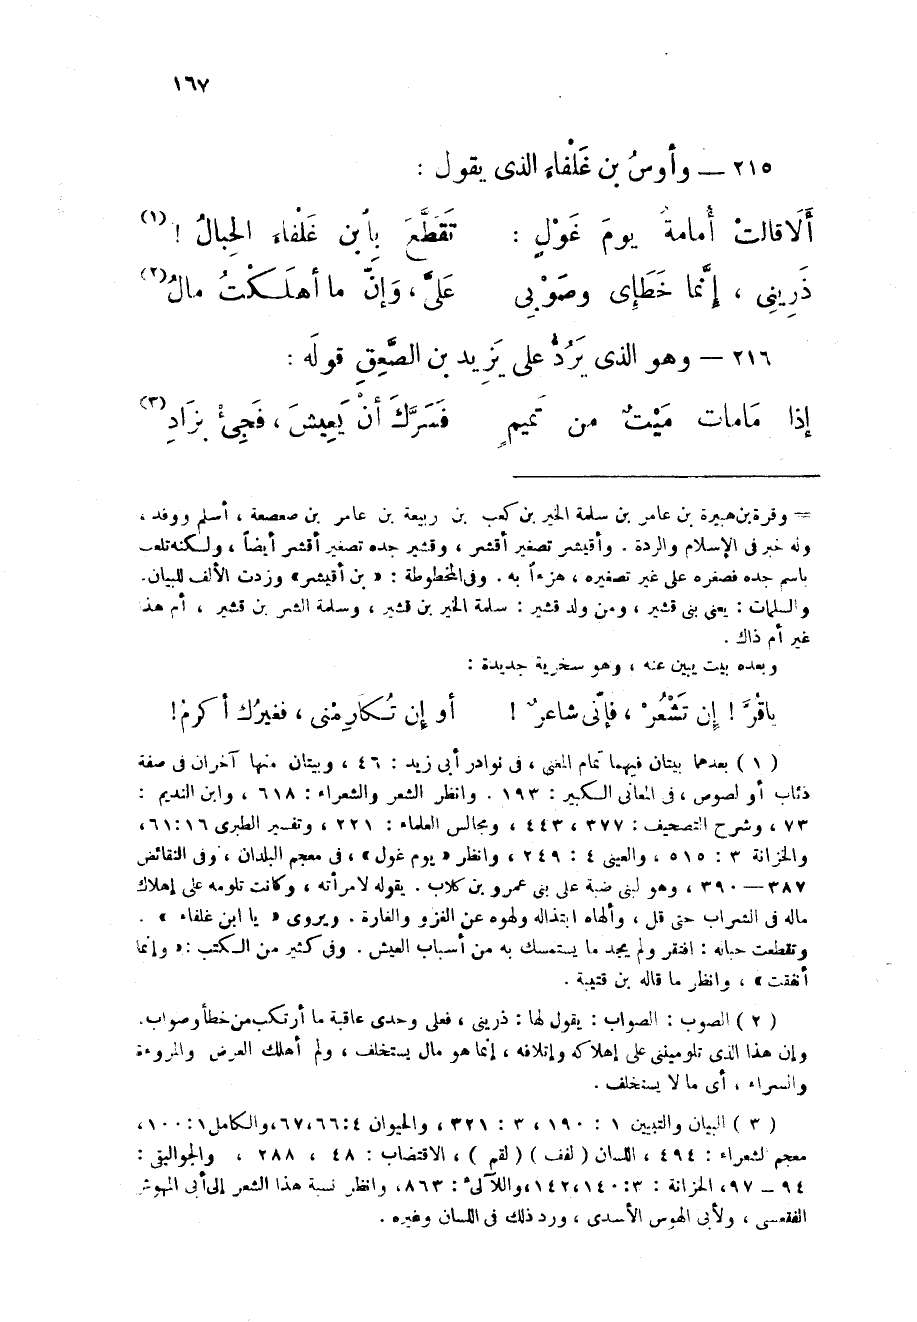 ١٦٧
٢١٥ — وأوسُ بن غَلْفاءِ الذى يقول :
أَلَا قالتْ أُمامةُ يومَ غَوْلٍ : تَقَطَّعَ بِابن غَلْفاءَ الحِبالُ !(١)
ذَرِينِى ، إِنَّما خَطَإِى وصَوْبِى عَلىَّ ، وَإِنّ ما أهلَكْتُ مالُ(٢)
٢١٦ — وهو الذى يَرُدُّ على يَزِيد بن الصَّعِقِ قولَه :
إذا مَامات مَيْتٌ من تَمِيمٍ فَسَرَّكَ أنْ يَعِيشَ ، فَجِئْ بزَادِ(٣)
= وقرة بن هبيرة بن عامر بن سلمة الخير بن كعب بن ربيعة بن عامر بن صعصعة ، أسلم ووفد ،
وله خبر فى الإسلام والردة . وأقيشر تصغير أقشر ، وقشير جده تصغير أقشر أيضاً ، ولكنه تلعب
باسم جده فصغره على غير تصغيره ، هزءاً به . وفى المخطوطة : « بن أقيشر » وزدت الألف للبيان .
والسلمات : يعنى بنى قشير ، ومن ولد قشير : سلمة الخير بن قشير ، وسلمة الشر بن قشير ، أم هذ
غير أم ذاك .
وبعده بيت يبين عنه ، وهو سخرية جديدة :
ياقُرَّ ! إِن تَشْعُرْ ، فإنّى شاعرٌ ! أو إِن تُكَارِمْنى ، فغيرُك أكرمُ !
( ١ ) بعدهما بيتان فيهما تمام المعنى ، فى نوادر أبى زيد : ٤٦ ، وبيتان منها آخران فى صفة
ذئاب أو لصوص ، فى المعانى الكبير : ١٩٣ . وانظر الشعر والشعراء : ٦١٨ ، وابن النديم :
٧٣ ، وشرح التصحيف : ٣٧٧ ، ٤٤٣ ، ومجالس العلماء : ٢٢١ ، وتفسير الطبرى ١٦ : ٦١ ،
والخزانة ٣ : ٥١٥ ، والعينى ٤ : ٢٤٩ ، وانظر « يوم غول » ، فى معجم البلدان ، وفى النقائض
٣٨٧ — ٣٩٠ ، وهو لبنى ضبة على بنى عمرو بن كلاب . يقوله لامرأته ، وكانت تلومه على إهلاك
ماله فى الشراب حتى قل ، وألهاه ابتذاله ولهوه عن الغزو والغارة . ويروى « يا ابن غلفاء » .
وتقطعت حباله : افتقر ولم يجد ما يستمسك به من أسباب العيش . وفى كثير من الكتب : « وإنما
أنفقت » ، وانظر ما قاله بن قتيبة .
( ٢ ) الصوب : الصواب : يقول لها : ذرينى ، فعلى وحدى عاقبة ما أرتكب من خطأ وصواب .
وإن هذا الذى تلوميننى على إهلاكه وإتلافه ، إنما هو مال يستخلف ، ولم أهلك العرض والمروءة
والسراء ، أى ما لا يستخلف .
( ٣ ) البيان والتبيين ١ : ١٩٠ ، ٣ : ٣٢١ ، والحيوان ٤ : ٦٦ ، ٦٧ ، والكامل ١ : ١٠٠ ،
معجم لشعراء : ٤٩٤ ، اللسان ( لفف ) ( لقم ) ، الاقتضاب : ٤٨ ، ٢٨٨ ، والجواليقى :
٩٤ – ٩٧ ، الخزانة : ٣ : ١٤٠ ، ١٤٢ ، واللآلئ : ٨٦٣ ، وانظر نسبة هذا الشعر إلى أبى المهوش
الفقعسى ، ولأبى الهوس الأسدى ، ورد ذلك فى اللسان وغيره .